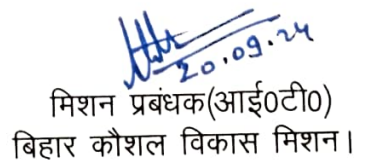 20.09.24
मिशन प्रबंधक(आई0टी0)
बिहार कौशल विकास मिशन।